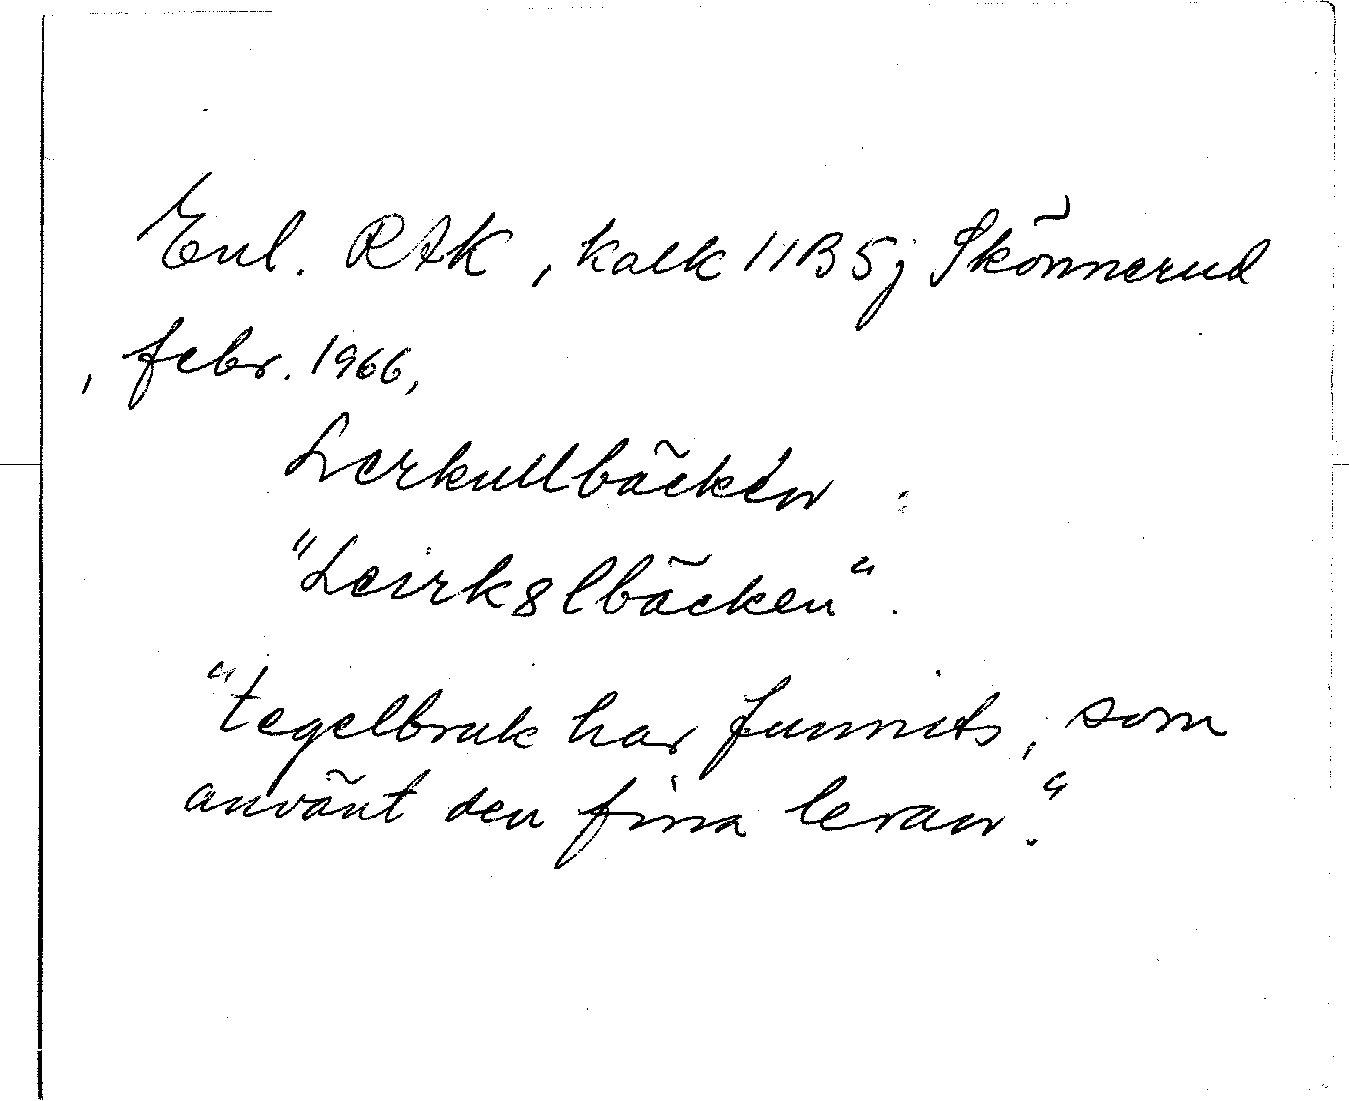 Enl. RAK, kalk 11B5j Skönnerud
, febr. 1966,
Lerkullbäcken :
"Leirk8lbäcken".
"tegelbruk har funnits, som
använt den fina leran."